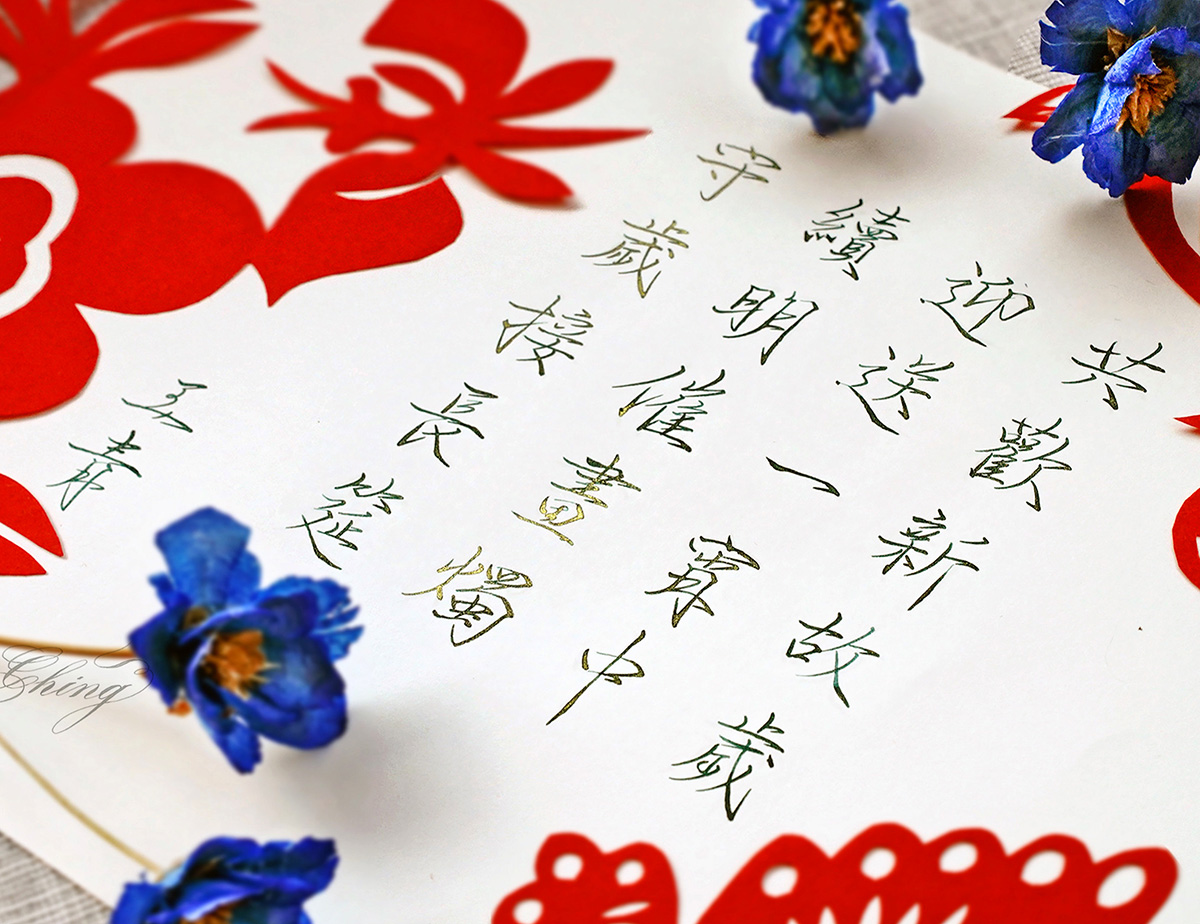 共歡新故歲
迎送一宵中
續明催畫燭
守歲接長筵
青
Ching